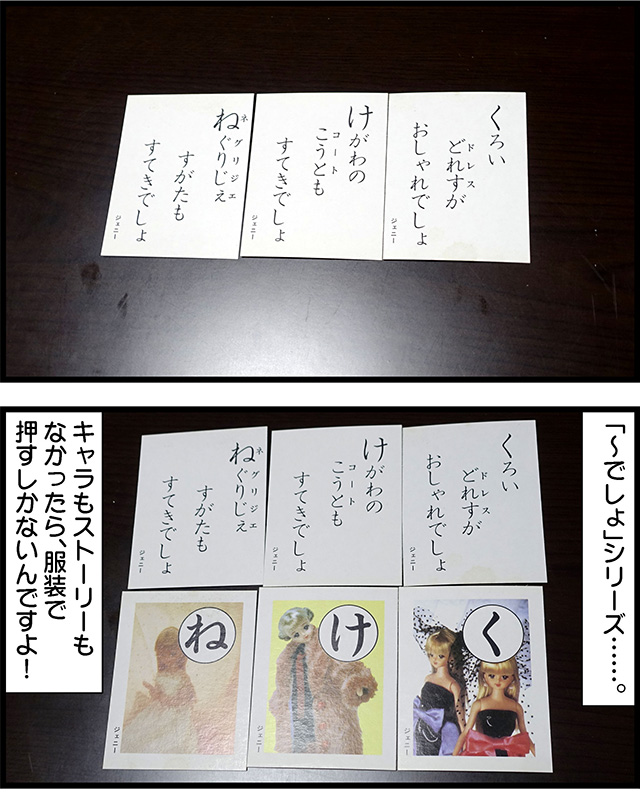 くろい
どれすが
ドレス
おしゃれでしょ
けがわの
こうとも
コート
すてきでしょ
ねぐりじぇ
ネグリジエ
すがたも
すてきでしょ
ジェニー
ジェニー
「～でしょ」シリーズ……。
くろい
どれすが
ドレス
おしゃれでしょ
けがわの
こうとも
コート
すてきでしょ
ジェニー
ねぐりじぇ
ネグリジエ
すがたも
すてきでしょ
ジェニー
く
ジェニー
け
ジェニー
ね
ジェニー
キャラもストーリーも
なかったら、服装で
押すしかないんですよ！